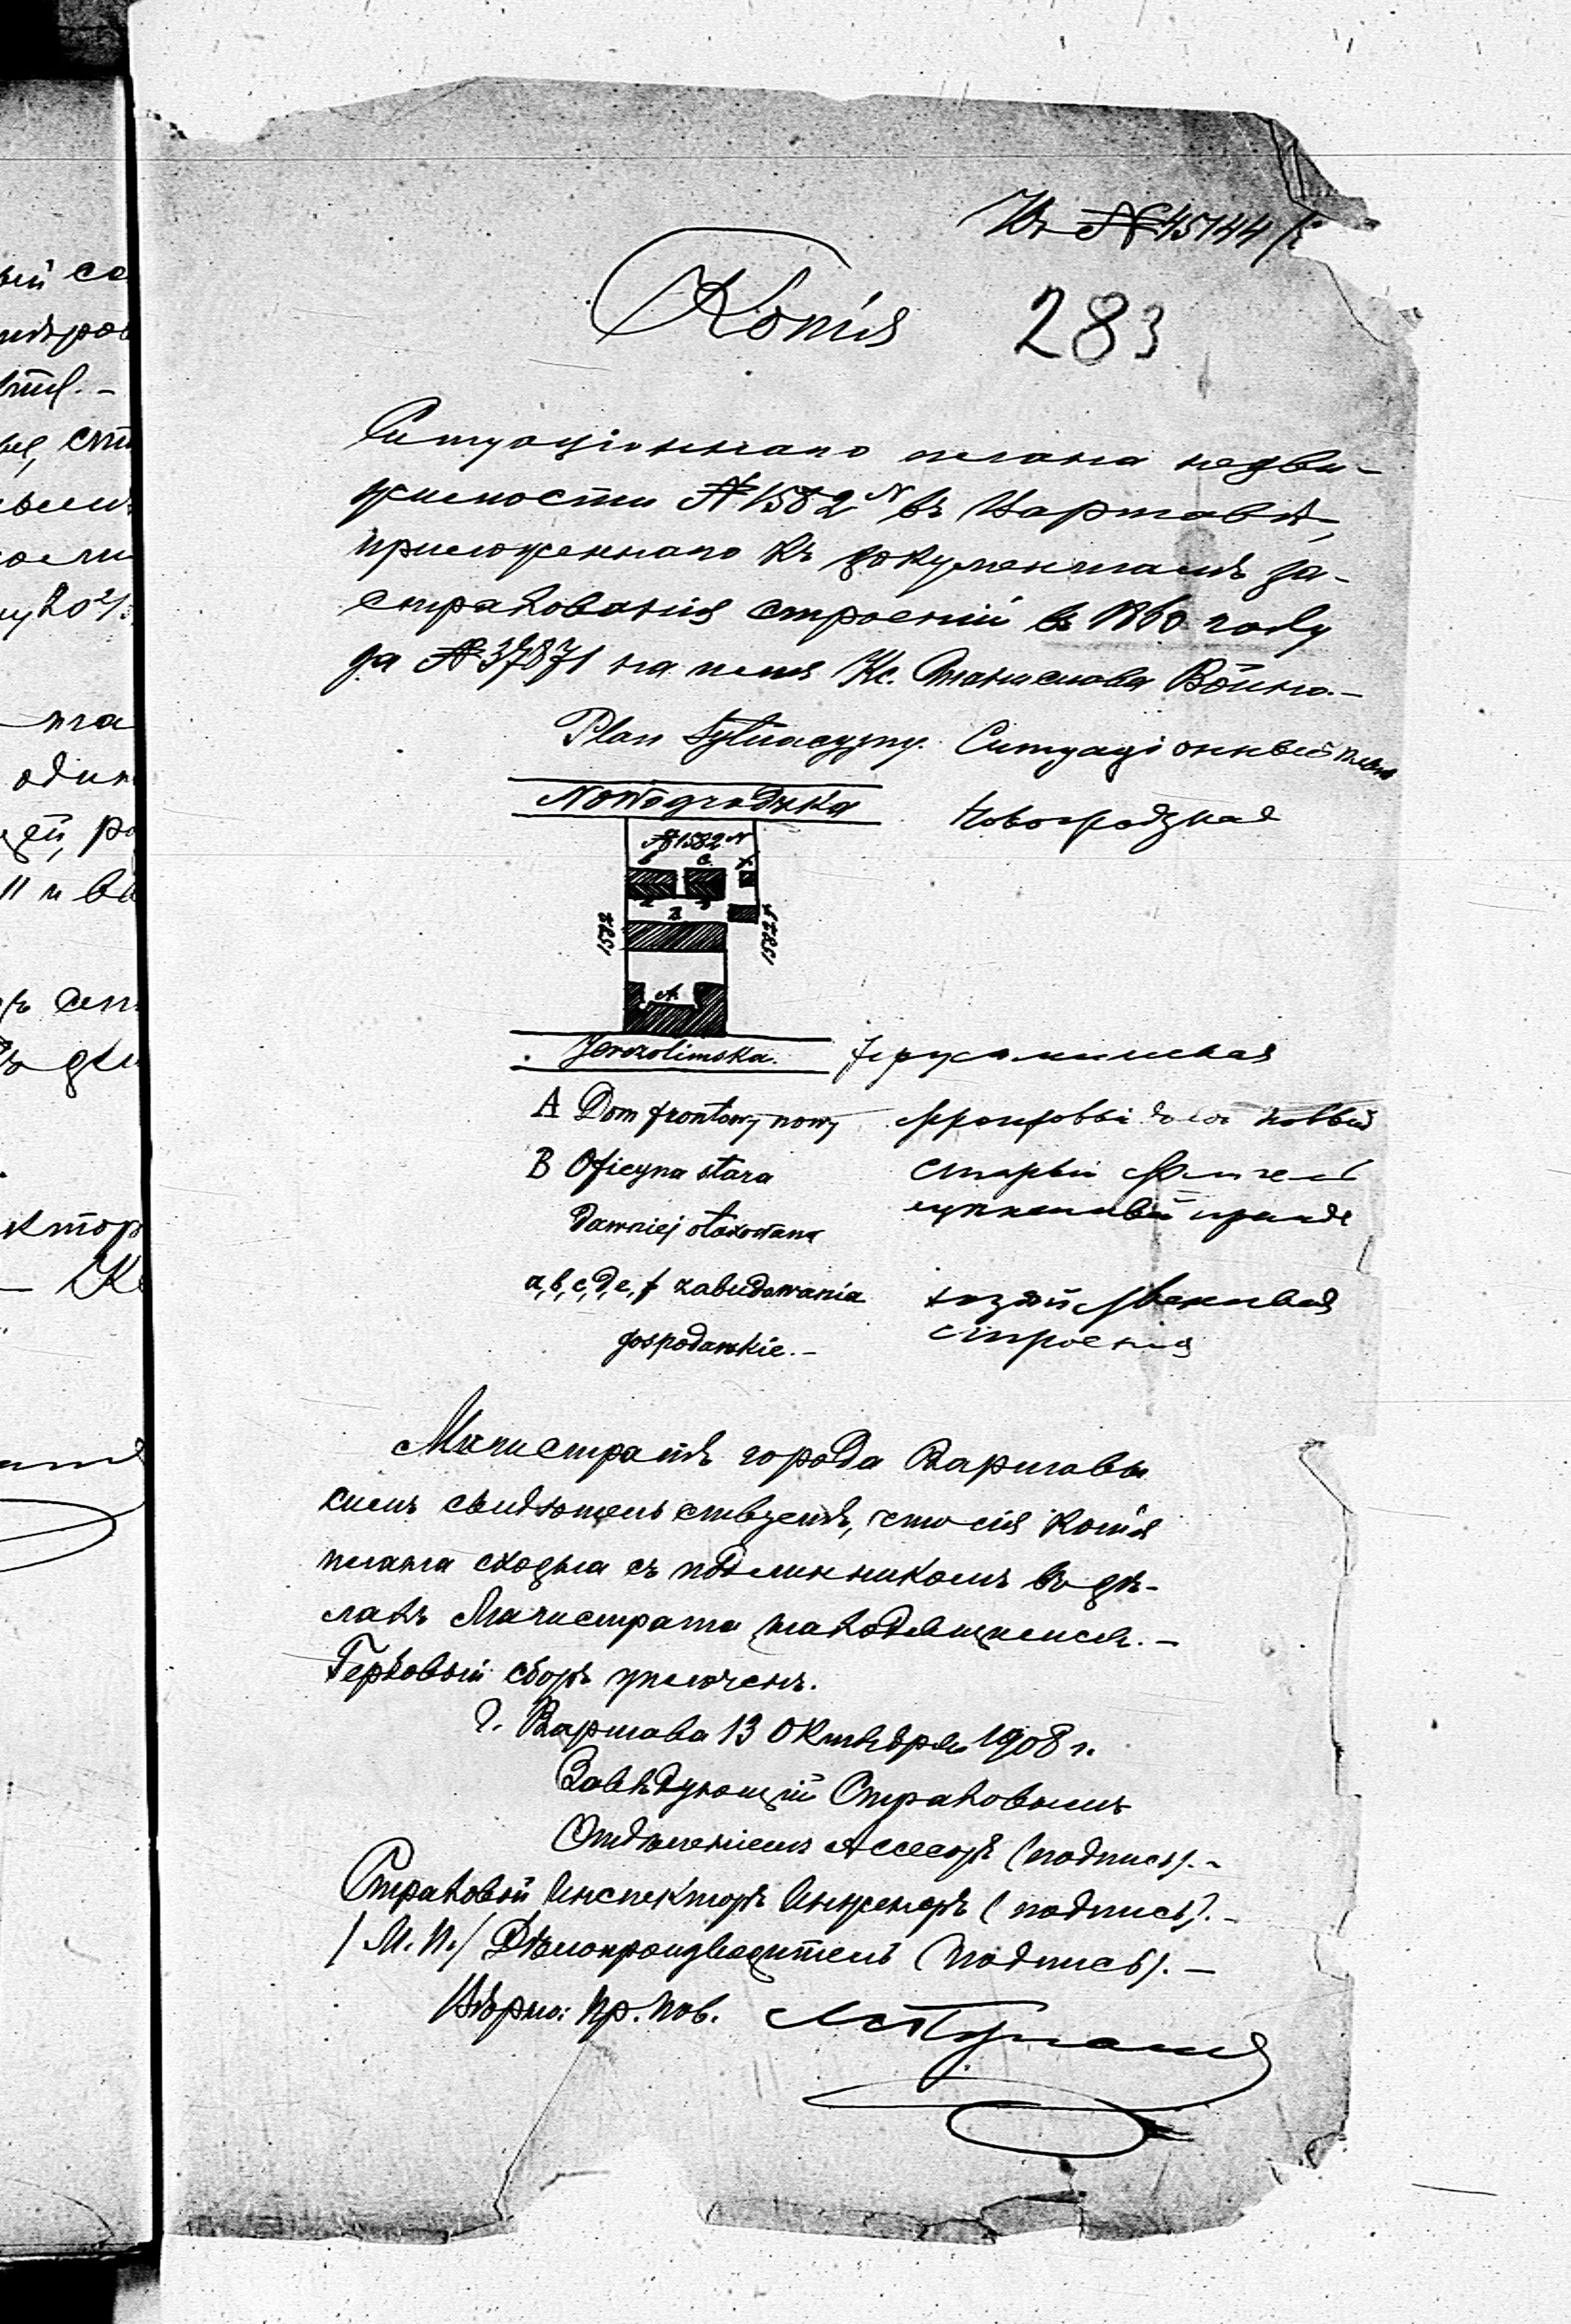 Къ № 45144
Копія 283
Ситуаціоннаго плана недви-
жимости № 1582 N въ Варшавѣ,
приложеннаго къ документамъ за-
страхованія строеній въ 1860 году
за № 37871 на имя Кс. Станислава Война.-
Plan Sytuacyjny. Ситуаціонный планъ
Nowogrodzka Новогродзкая
№ 1582 N
b c
B
1582 1582
A
Jerozolimska. Іерусалимская
A Dom frontowy nowy фронтовый домъ новый
B Oficyna stara старый флигель
dawniej otaxowana прежде
a, b, c, d, e, f zabudowania хозяйственныя
gospodarskie.- строенія
Магистратъ города Варшавы
симъ свидѣтельствуетъ, что сія копія
плана сходна съ подлинникомъ въ дѣ-
лахъ Магистрата находящимся.-
Гербовый сборъ уплоченъ.
г. Варшава 13 Октября 1908 г.
Завѣдующій Страховымъ
Отдѣленіемъ Ассесоръ (подпись).-
Страховой Инспекторъ Инженеръ (подпись).-
/М. П./ Дѣлопроизводитель (подпись).-
Вѣрно: Пр. пов.
ый со
один
ей, ро